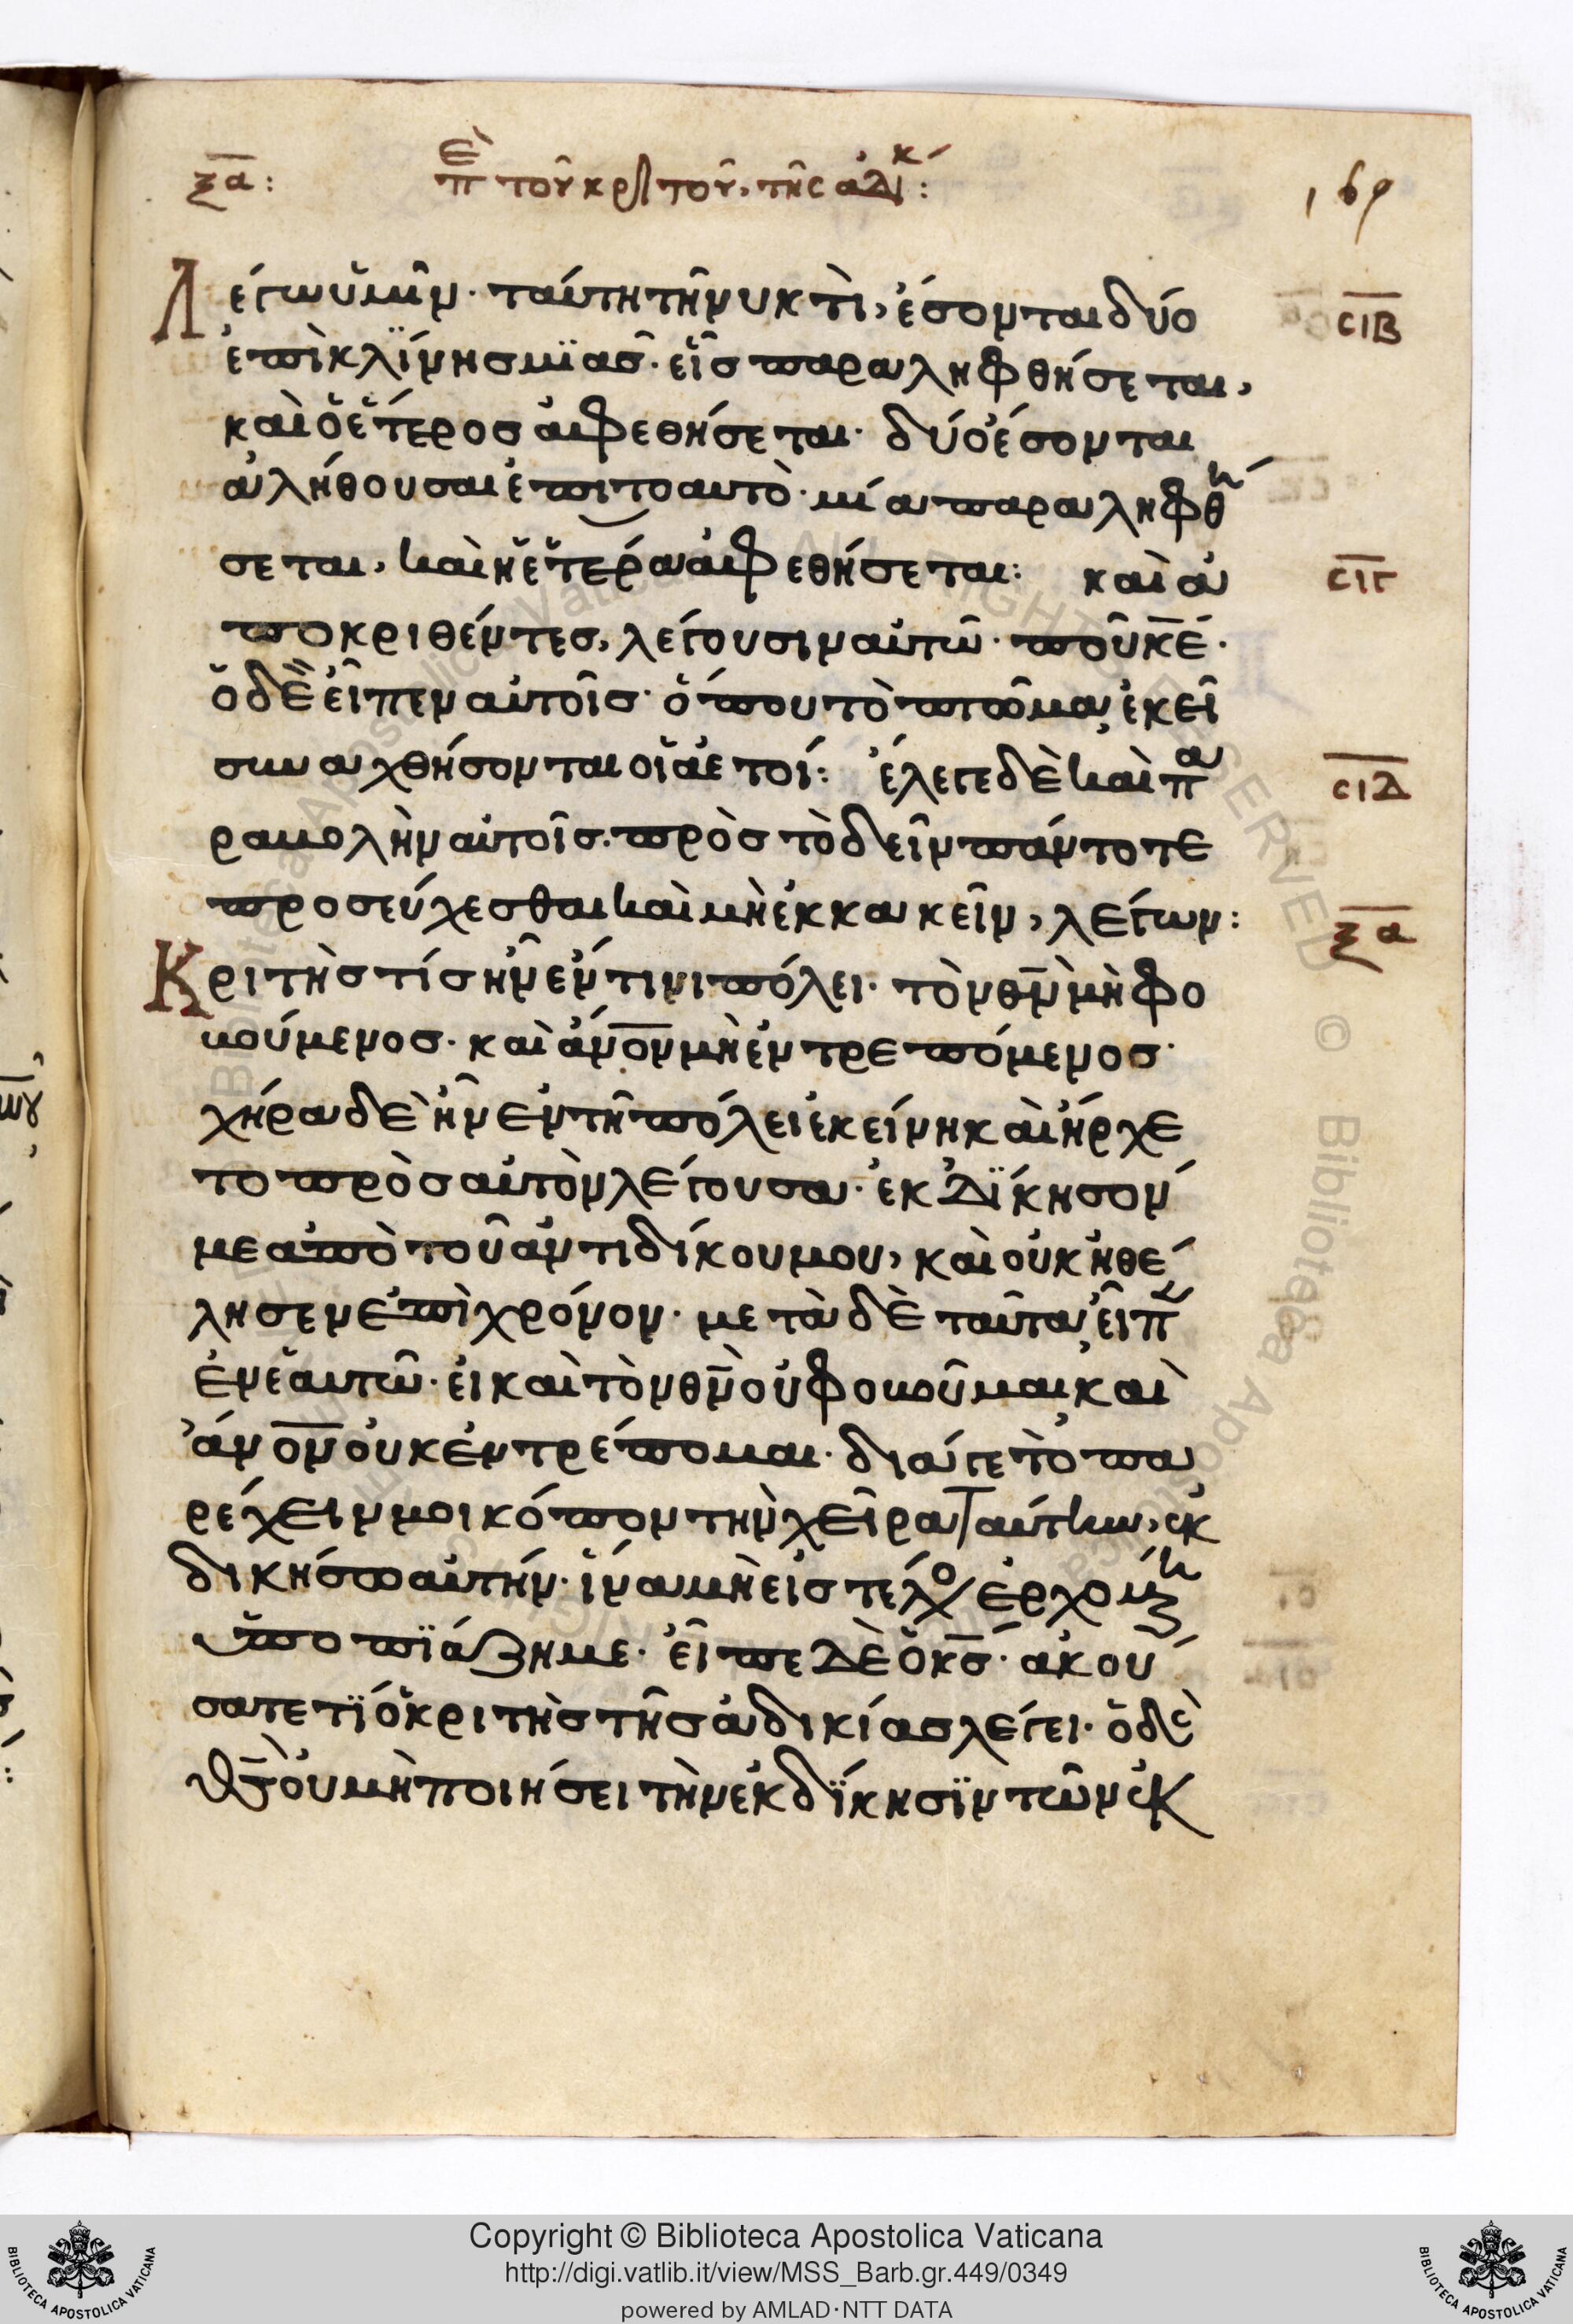 ξα: περὶ τοῦ κριτοῦ, τῆς ἀδικ: 169
Λέγω ὑμῖν· ταύτη τῆ νυκτὶ, ἔσονται δύο σιβ
ἐπὶ κλίνης μϊᾶς· εἷς παραληφθήσεται,
καὶ ὁ ἕτερος ἀφεθήσεται· δύο ἔσονται
ἀλήθουσαι ἐπιτοαυτὸ· μία παραληφθή
σεται, καὶ ἡ ἑτέρα ἀφεθήσεται: καὶ ἀ σιγ
ποκριθέντες, λέγουσιν αὐτῶ· ποῦ κε·
ὁ δὲ εἶπεν αὐτοῖς· ὅπου τὸ πτῶμα, ἐκεῖ
συναχθήσονται οἱ ἀετοί: ἔλεγε δὲ καὶ πα σιδ
ραβολὴν αὐτοῖς· πρὸς τὸ δεῖν πάντοτε
προσεύχεσθαι καὶ μὴ ἐκκακεῖν, λέγων: ξα
Κριτὴς τίς ἦν ἔν τινι πόλει· τὸν θν μὴ φο
βούμενος· καὶ ἄνον μὴ ἐντρεπόμενος·
χήρα δὲ ἦν ἐν τῆ πόλει ἐκείνη καὶ ἤρχε
το πρὸς αὐτὸν λέγουσα· ἐκδΐκησον
με ἀπὸ τοῦ ἀντιδίκου μου, καὶ οὐκ ἠθέ
λησεν ἐπὶ χρόνον· μετὰ δὲ ταῦτα, εἶπεν
ἐν ἑαυτῶ· εἰ καὶ τὸν θν οὐ φοβοῦμαι, καὶ
ἄνον οὐκ ἐντρέπομαι· διά γε τὸ πα
ρέχειν μοι κόπον τὴν χεῖρα ταύτην, ἐκ
δικήσω αὐτήν· ἵνα μὴ εἰς τέλος ἐρχομένη
ὑποπϊάζη με· εἶπε δὲ ὁ κς· ἀκού
σατε τϊ ὁ κριτὴς τῆς ἀδικίας λέγει· ὁ δὲ
θς οὐ μὴ ποιήσει τὴν ἐκδΐκησϊν τῶν ἐκ
Copyright © Biblioteca Apostolica Vaticana
http://digi.vatlib.it/view/MSS_Barb.gr.449/0349
powered by AMLAD·NTT DATA